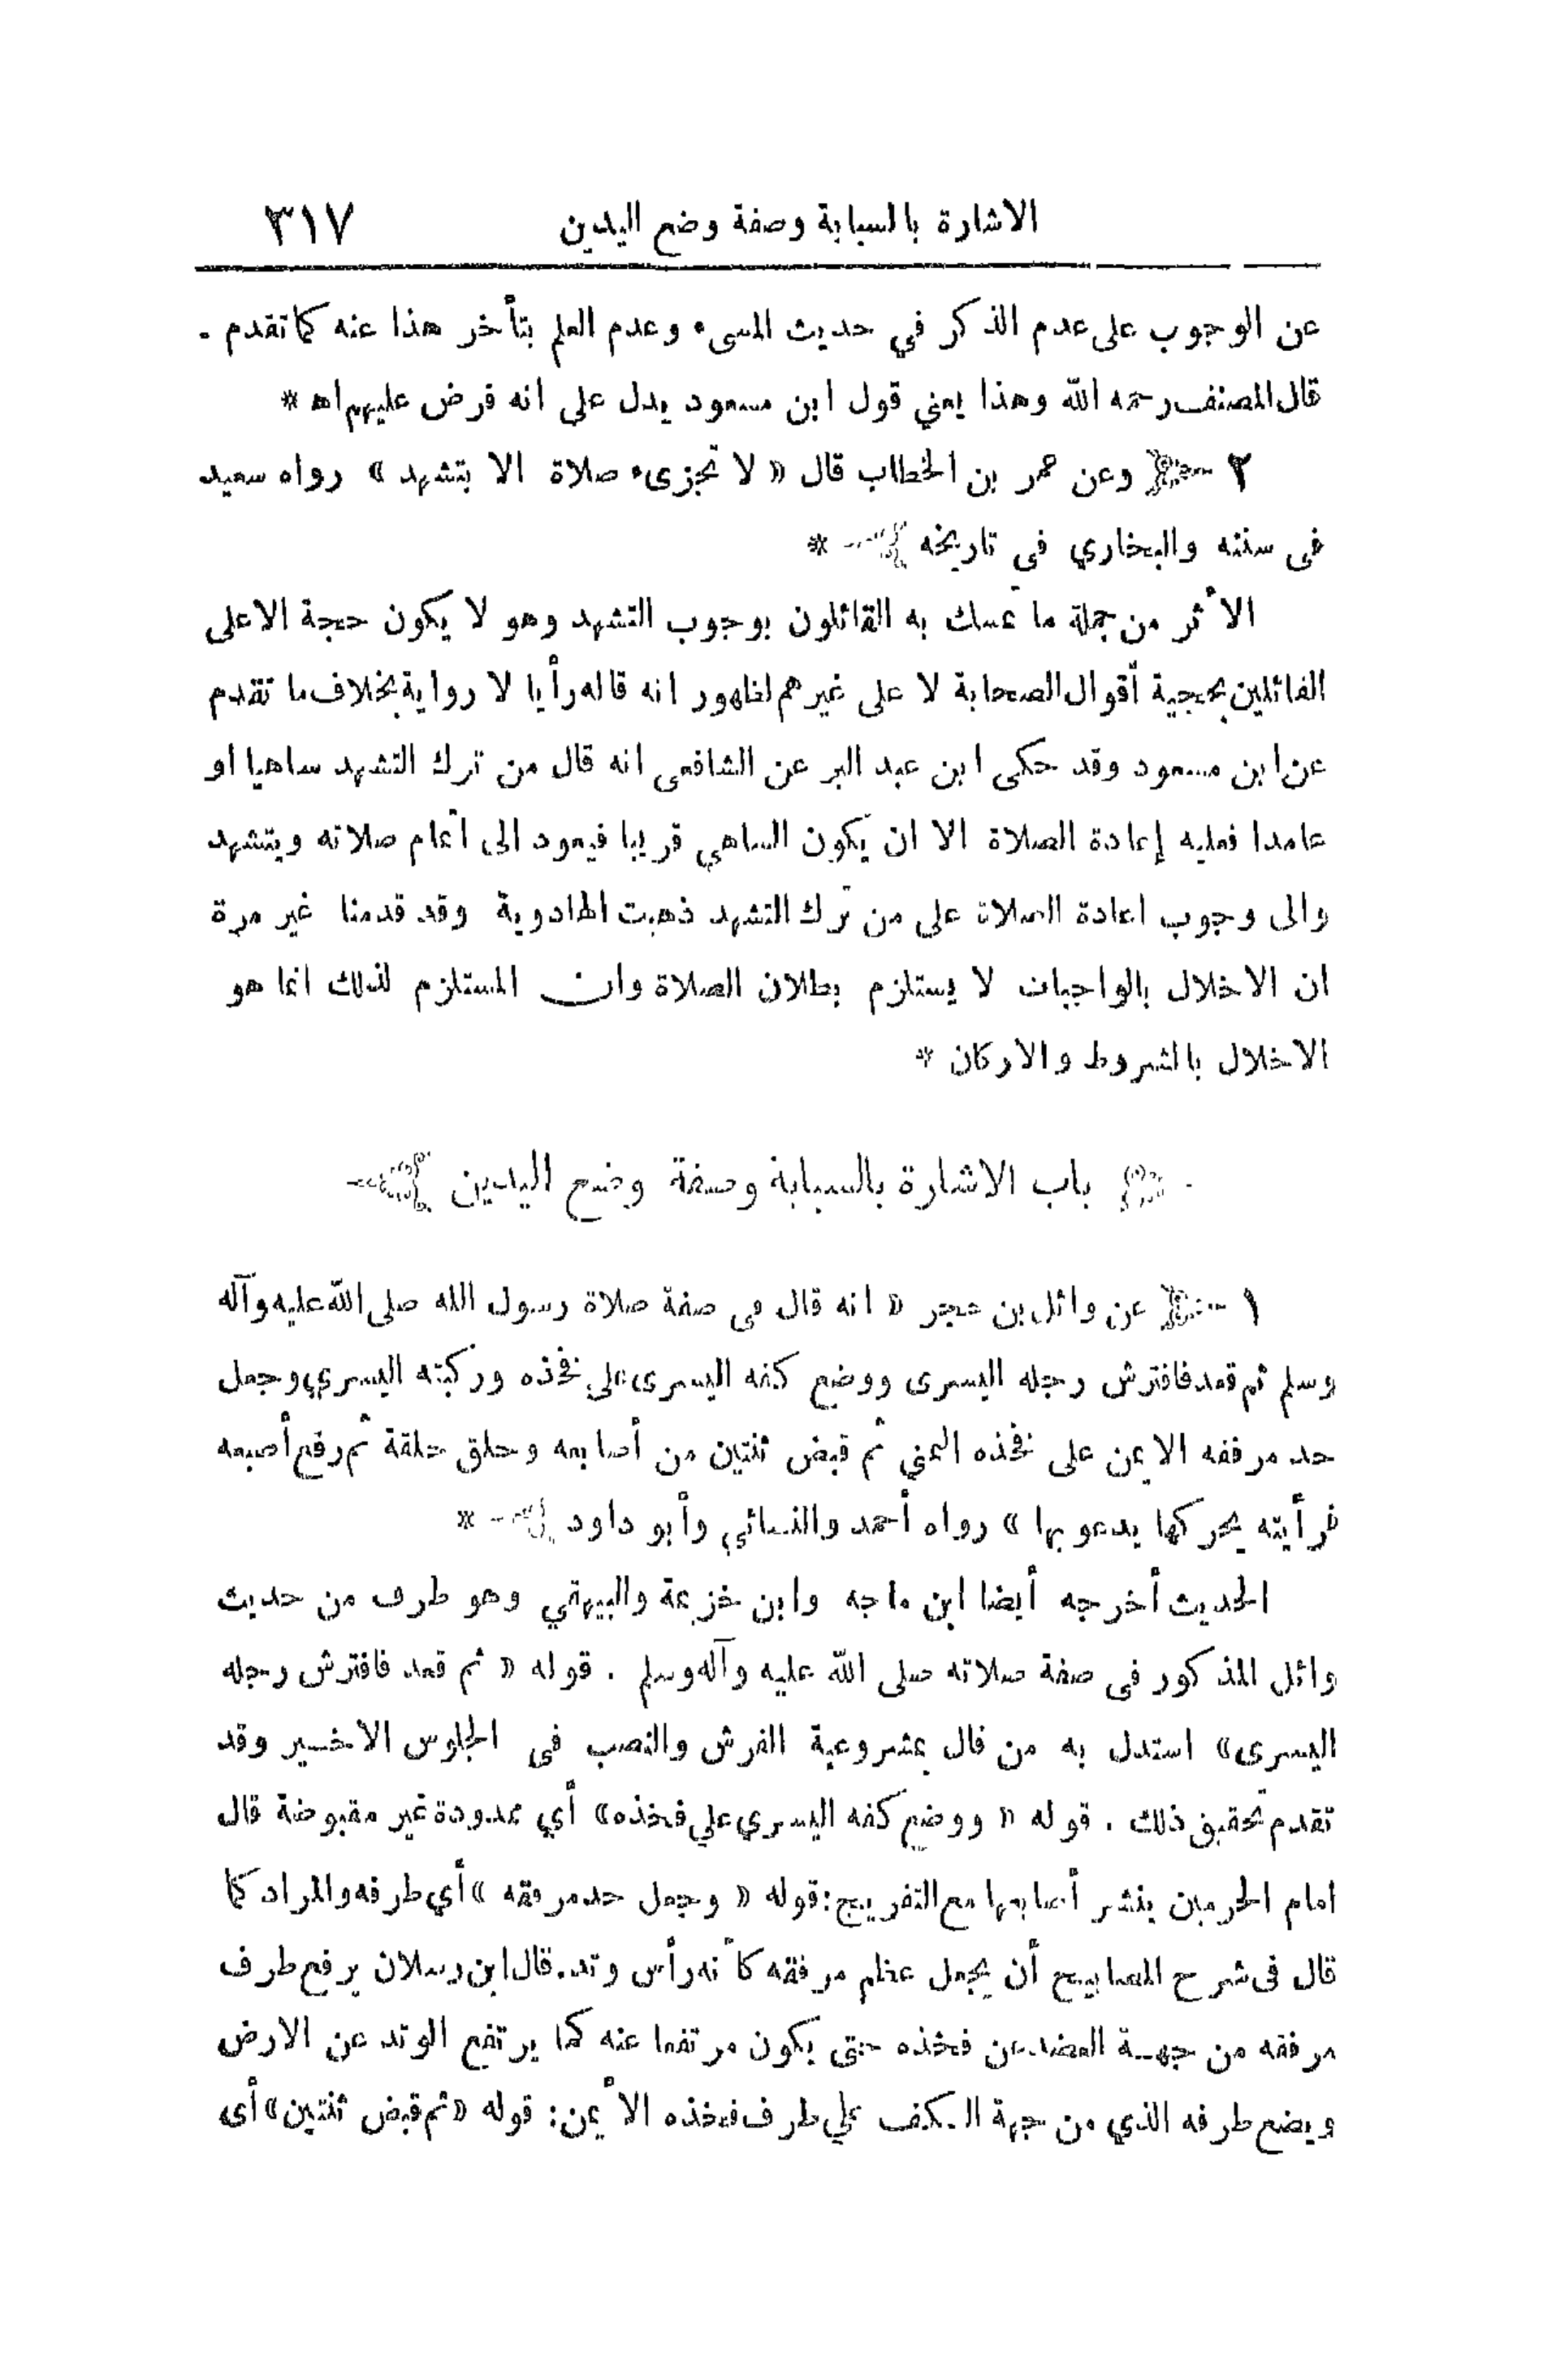 الاشارة بالسبابة وصفة وضع اليدين ٣١٧
عن الوجوب على عدم الذكر في حديث المسىء وعدم العلم بتأخر هذا عنه كما تقدم .
قال المصنف رحمه الله وهذا يعني قول ابن مسعود يدل على انه فرض عليهم اهـ *
٢ وعن عمر بن الخطاب قال « لا تجزىء صلاة الا بتشهد » رواه سعيد
فى سننه والبخاري في تاريخه *
الأثر من جملة ما تمسك به القائلون بوجوب التشهد وهو لا يكون حجة الا على
القائلين بحجية أقوال الصحابة لا على غيرهم لظهور انه قاله رأيا لا رواية بخلاف ما تقدم
عن ابن مسعود وقد حكى ابن عبد البر عن الشافعى انه قال من ترك التشهد ساهيا او
عامدا فعليه إعادة الصلاة الا ان يكون الساهي قريبا فيعود الى اتمام صلاته ويتشهد
والى وجوب اعادة الصلاة على من ترك التشهد ذهبت الهادوية وقد قدمنا غير مرة
ان الاخلال بالواجبات لا يستلزم بطلان الصلاة وان المستلزم لذلك انما هو
الاخلال بالشروط والاركان *
باب الاشارة بالسبابة وصفة وضع اليدين
١ عن وائل بن حجر « انه قال فى صفة صلاة رسول الله صلى الله عليه وآله
وسلم ثم قعد فافترش رجله اليسرى ووضع كفه اليسرى على فخذه وركبته اليسري وجعل
حد مرفقه الايمن على فخذه اليمني ثم قبض ثنتين من أصابعه وحلق حلقة ثم رفع أصبعه
فرأيته يحركها يدعو بها » رواه أحمد والنسائي وأبو داود *
الحديث أخرجه أيضا ابن ماجه وابن خزيمة والبيهقي وهو طرف من حديث
وائل المذكور فى صفة صلاته صلى الله عليه وآله وسلم . قوله « ثم قعد فافترش رجله
اليسرى» استدل به من قال بمشروعية الفرش والنصب فى الجلوس الاخير وقد
تقدم تحقيق ذلك . قوله « ووضع كفه اليسري علي فخذه» أي ممدودة غير مقبوضة قال
امام الحرمين ينشر أصابعها مع التفريج : قوله « وجعل حد مرفقه » أي طرفه والمراد كما
قال فى شرح المصابيح أن يجعل عظم مرفقه كأنه رأس وتد . قال ابن رسلان يرفع طرف
مرفقه من جهة العضد عن فخذه حتى يكون مرتفعا عنه كما يرتفع الوتد عن الارض
ويضع طرفه الذي من جهة الكف علي طرف فخذه الأيمن : قوله « ثم قبض ثنتين» أى